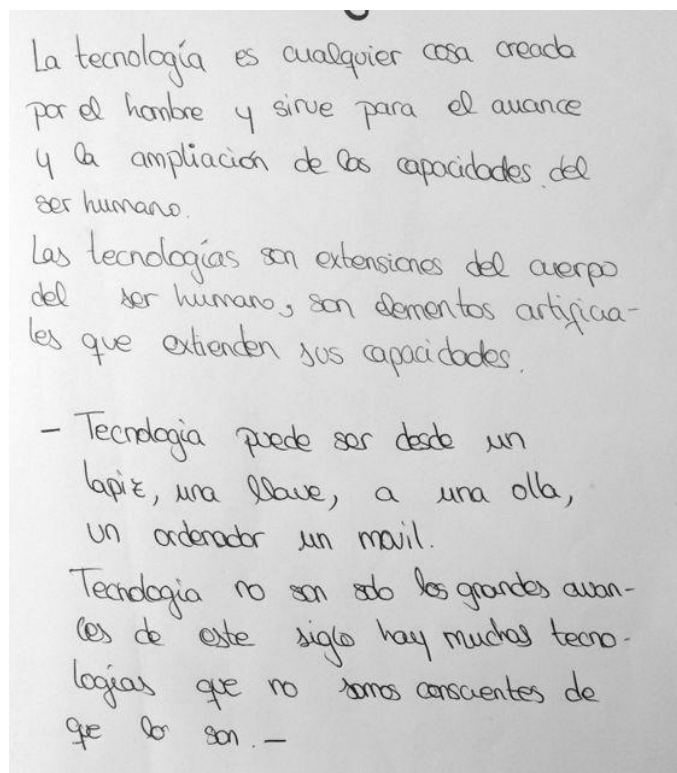 La tecnología es cualquier cosa creada
por el hombre y sirve para el avance
y la ampliación de las capacidades del
ser humano.
Las tecnologías son extensiones del cuerpo
del ser humano, son elementos artificia-
les que extienden sus capacidades.
- Tecnologia puede ser desde un
lapiz, una llave, a una olla,
un ordenador un movil.
Tecnologia no son solo los grandes avan-
ces de este siglo hay muchas tecno-
logias que no somos conscientes de
que lo son. -